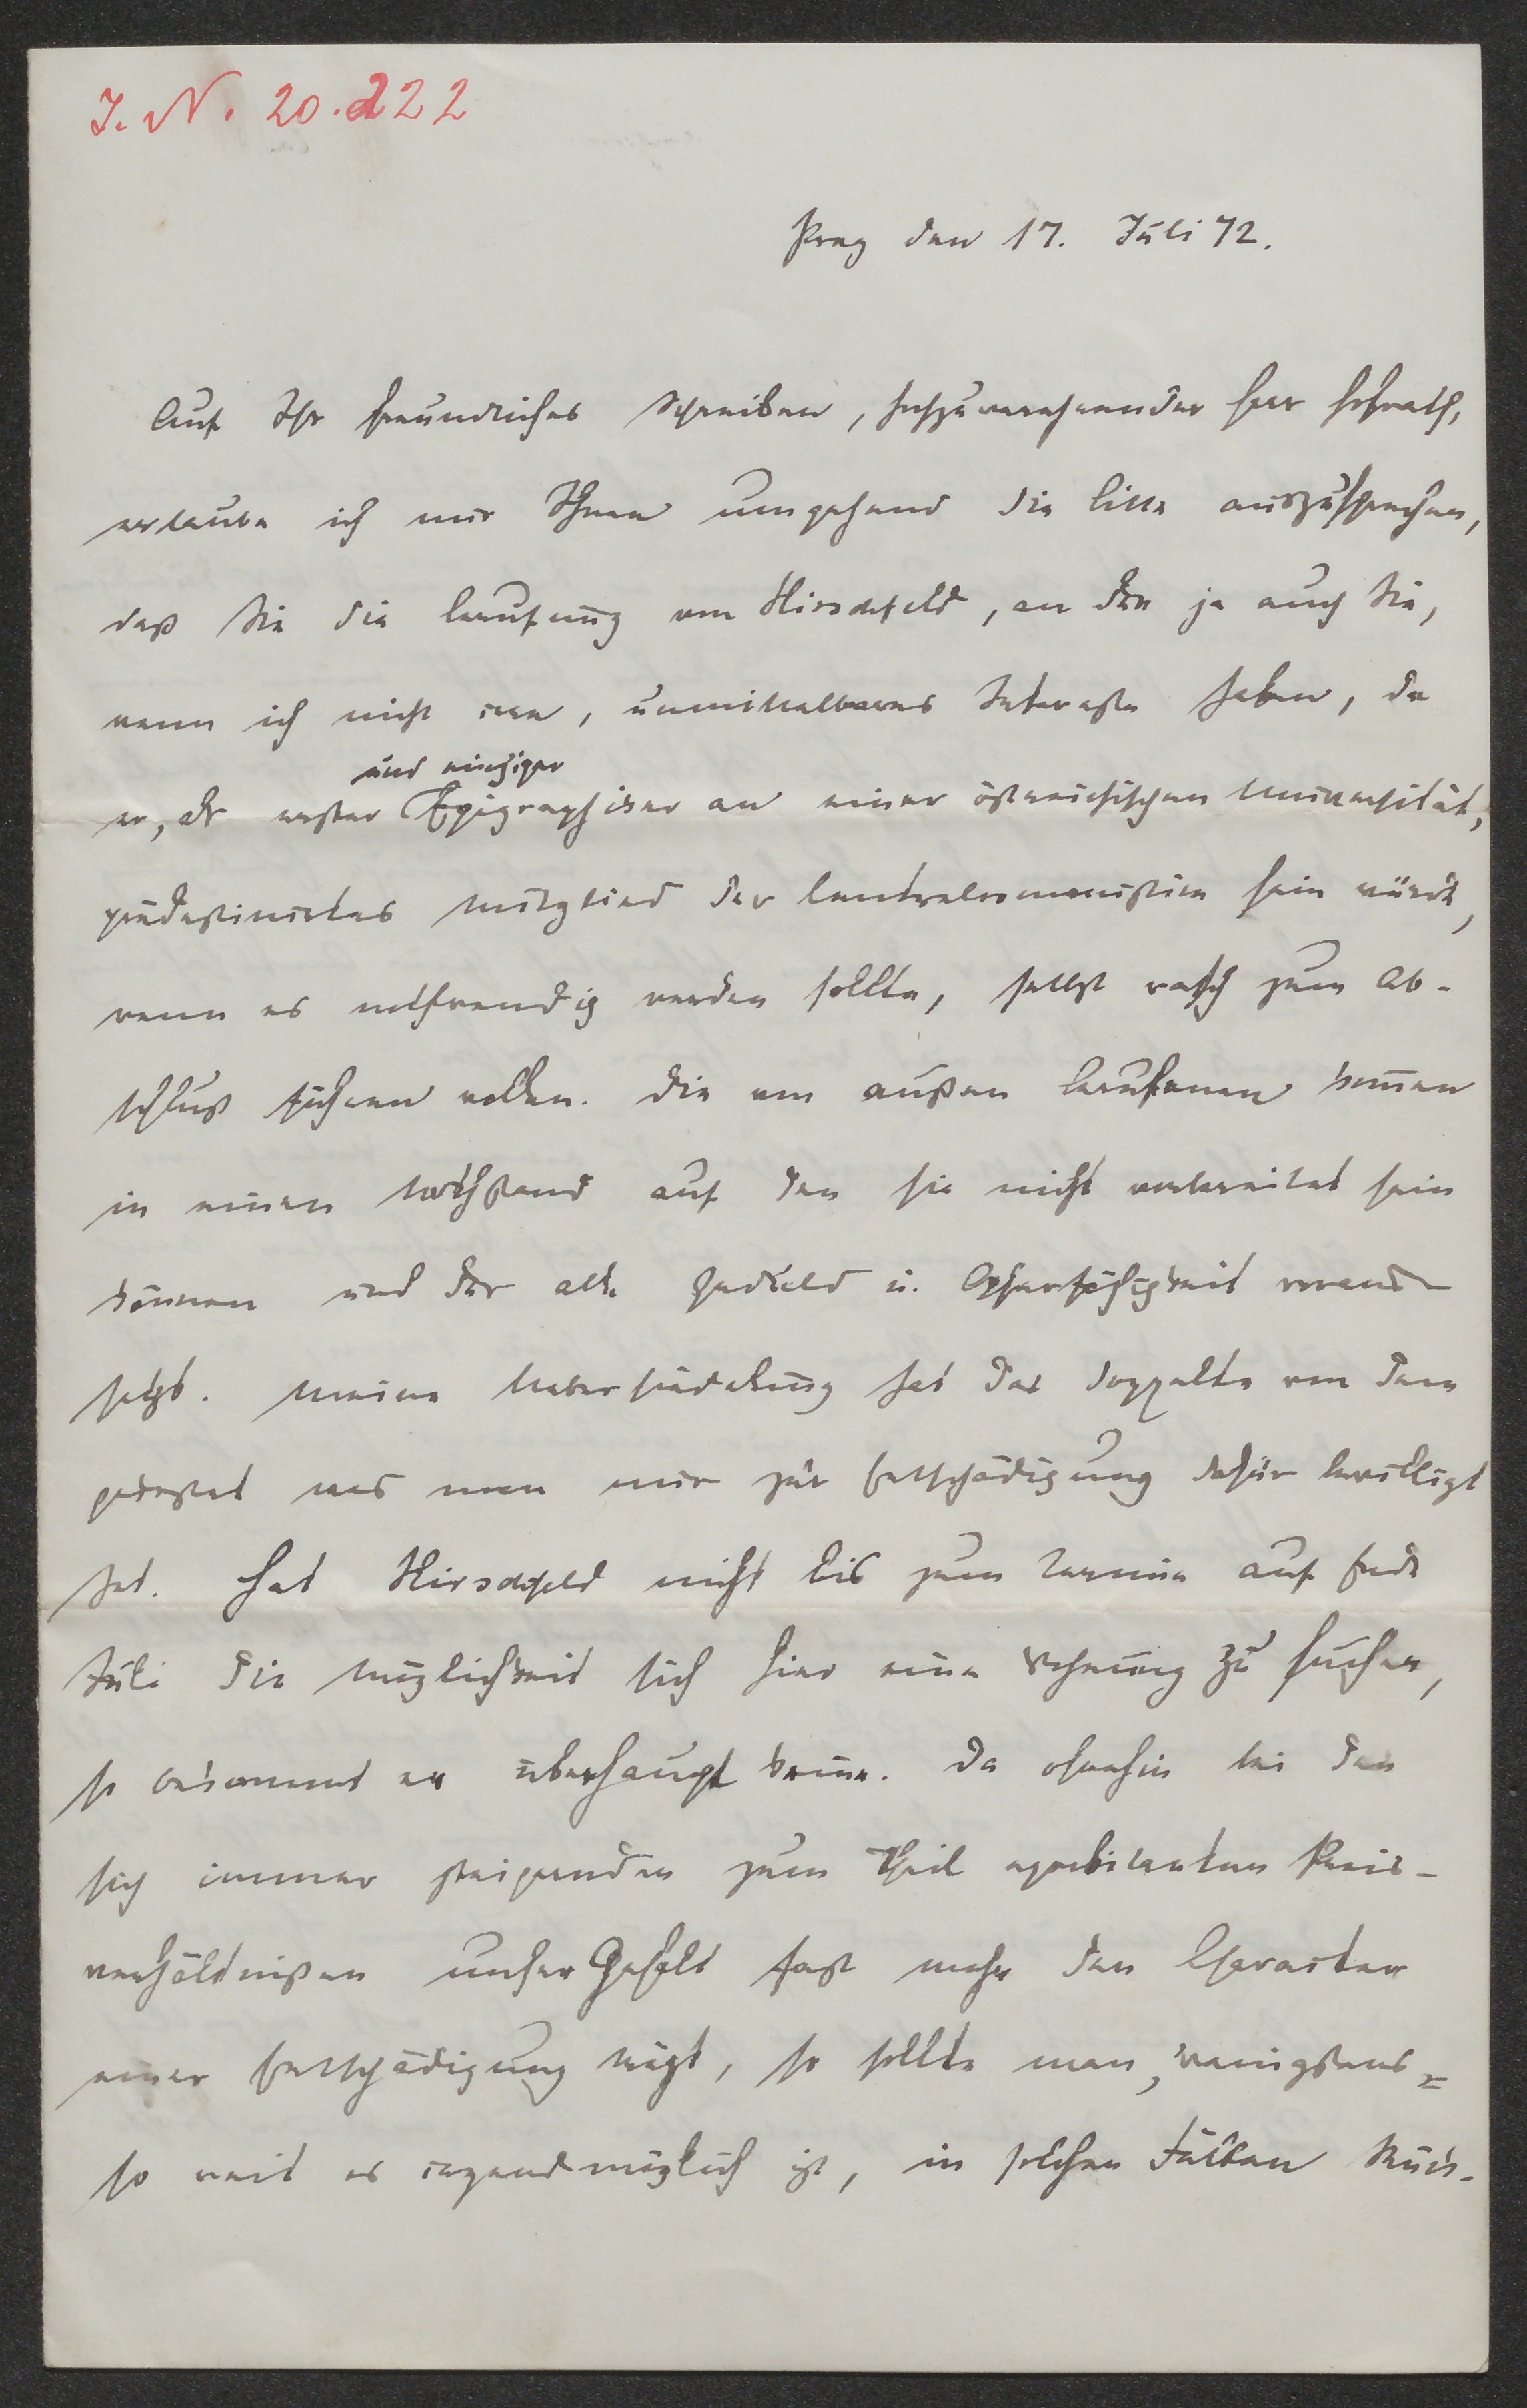 J. N. 20.222
Prag den 17. Juli 72.
Auf Ihr freundliches Schreiben, hochzuverehrender Herr Hofrath,
erlaube ich mir Ihnen umgehend die Bitte auszusprechen,
daß Sie die Berufung von Hirschfeld, an der ja auch Sie,
wenn ich nicht irre, unmittelbares Interesse haben, da
und einziger
er, als erster Epigraphiker an einer österreichischen Universität,
prädestinirtes Mitglied der Centralcommission sein würde,
wenn es nothwendig werden sollte, selbst rasch zum Ab-
schluß führen wollen. Die von außen Berufenen kommen
in einen Nothstand auf den sie nicht vorbereitet sein
können und der alle Geduld u. Opferfähigkeit voraus-
setzt. Meine Uebersiedelung hat das doppelte von dem
gekostet was man mir zur Entschädigung dafür bewilligt
hat. Hat Hirschfeld nicht bis zum Termin auf Ende
Juli die Möglichkeit sich hier eine Wohnung zu suchen,
so bekommt er überhaupt keine. Da ohnehin bei den
sich immer steigenden zum Theil exorbitanten Preis-
verhältnißen unser Gehalt fast mehr den Charakter
einer Entschädigung trägt, so sollte man, wenigstens
so weit es irgend möglich ist, in solchen Fällen Rück-